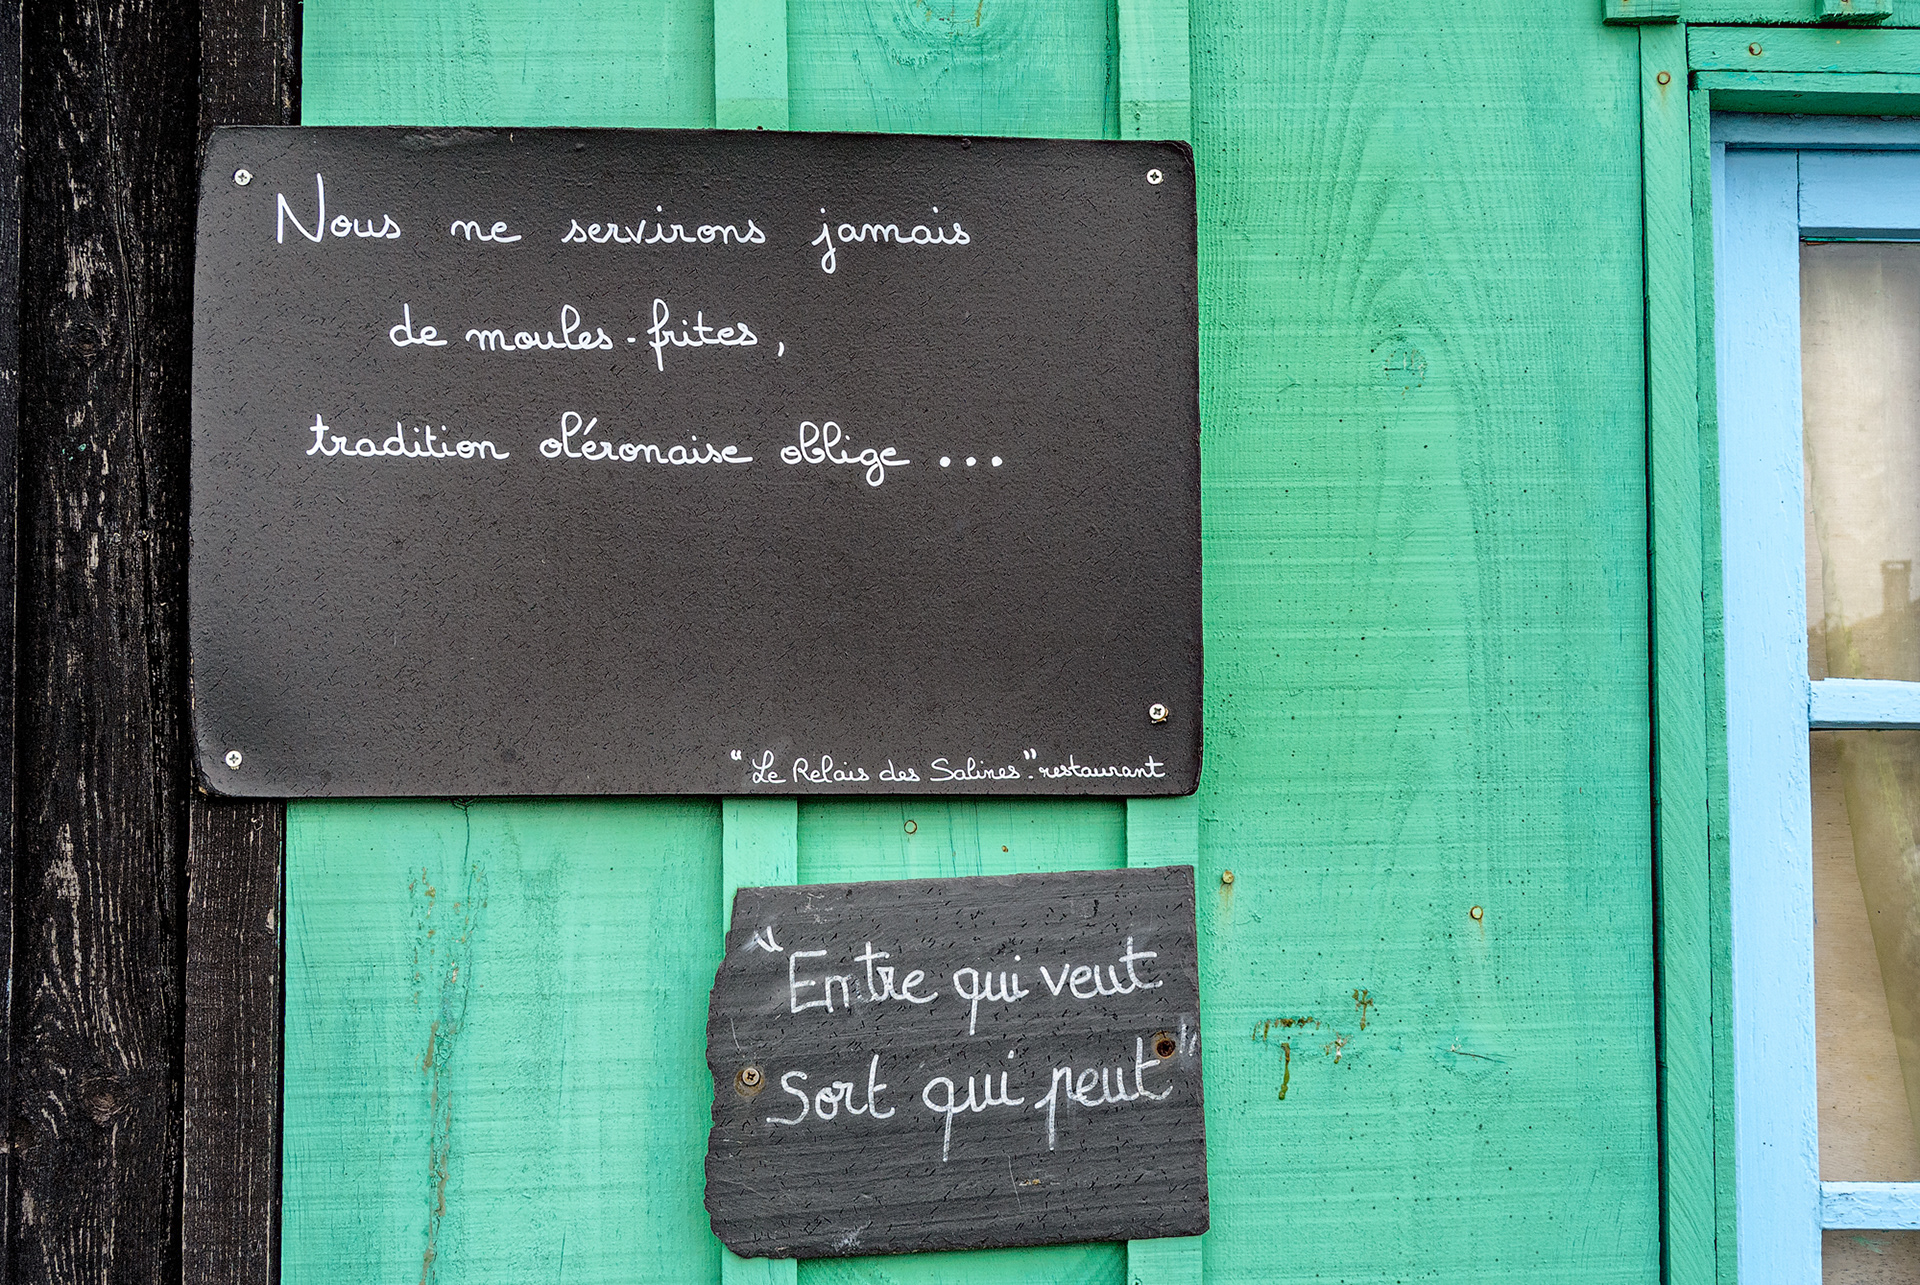 Nous ne servirons jamais
de moules-frites,
tradition oléronaise oblige ...
"Le Relais des Salines". restaurant
"Entre qui veut
Sort qui peut"